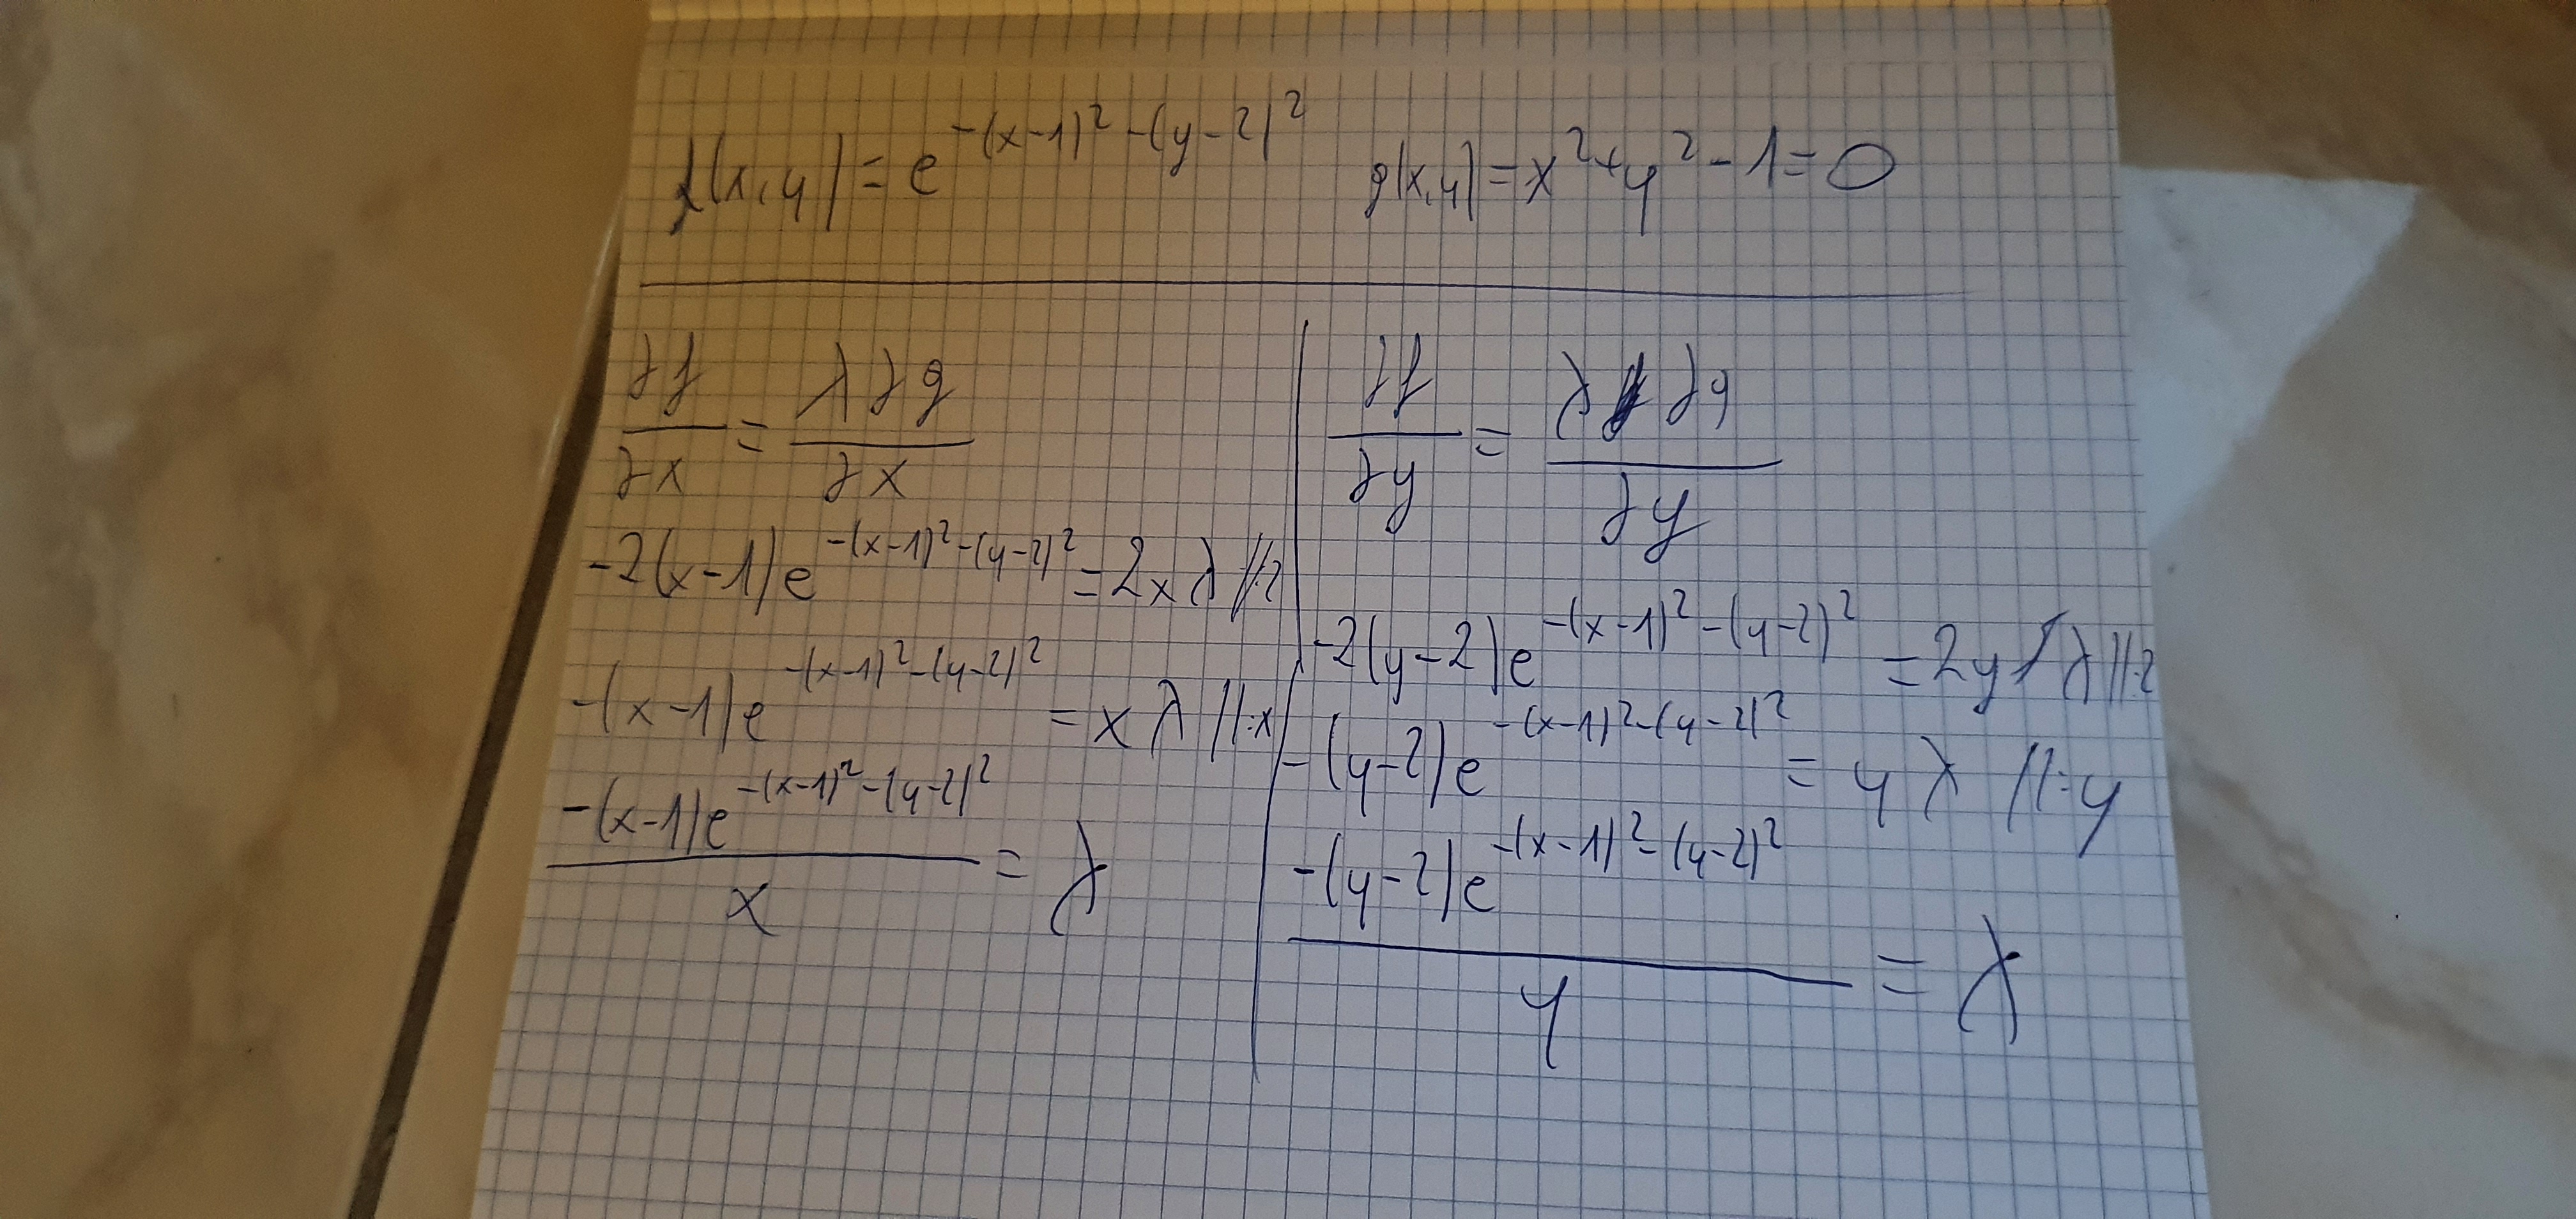 f(x,y) = e^{-(x-1)^2-(y-2)^2} g(x,y) = x^2+y^2-1=0
∂f/∂x = λ∂g/∂x
-2(x-1)e^{-(x-1)^2-(y-2)^2} = 2xλ //:2
-(x-1)e^{-(x-1)^2-(y-2)^2} = xλ //:x
-(x-1)e^{-(x-1)^2-(y-2)^2}/x = λ
∂f/∂y = λ∂g/∂y
-2(y-2)e^{-(x-1)^2-(y-2)^2} = 2yλ //:2
-(y-2)e^{-(x-1)^2-(y-2)^2} = yλ //:y
-(y-2)e^{-(x-1)^2-(y-2)^2}/y = λ